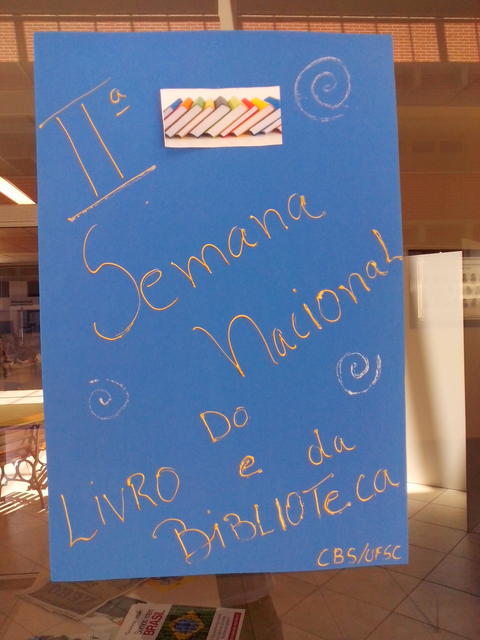 IIª
Semana
Nacional
Do
LIVRO e da
BIBLIOTeca
CBS/UFSC
BRASIL